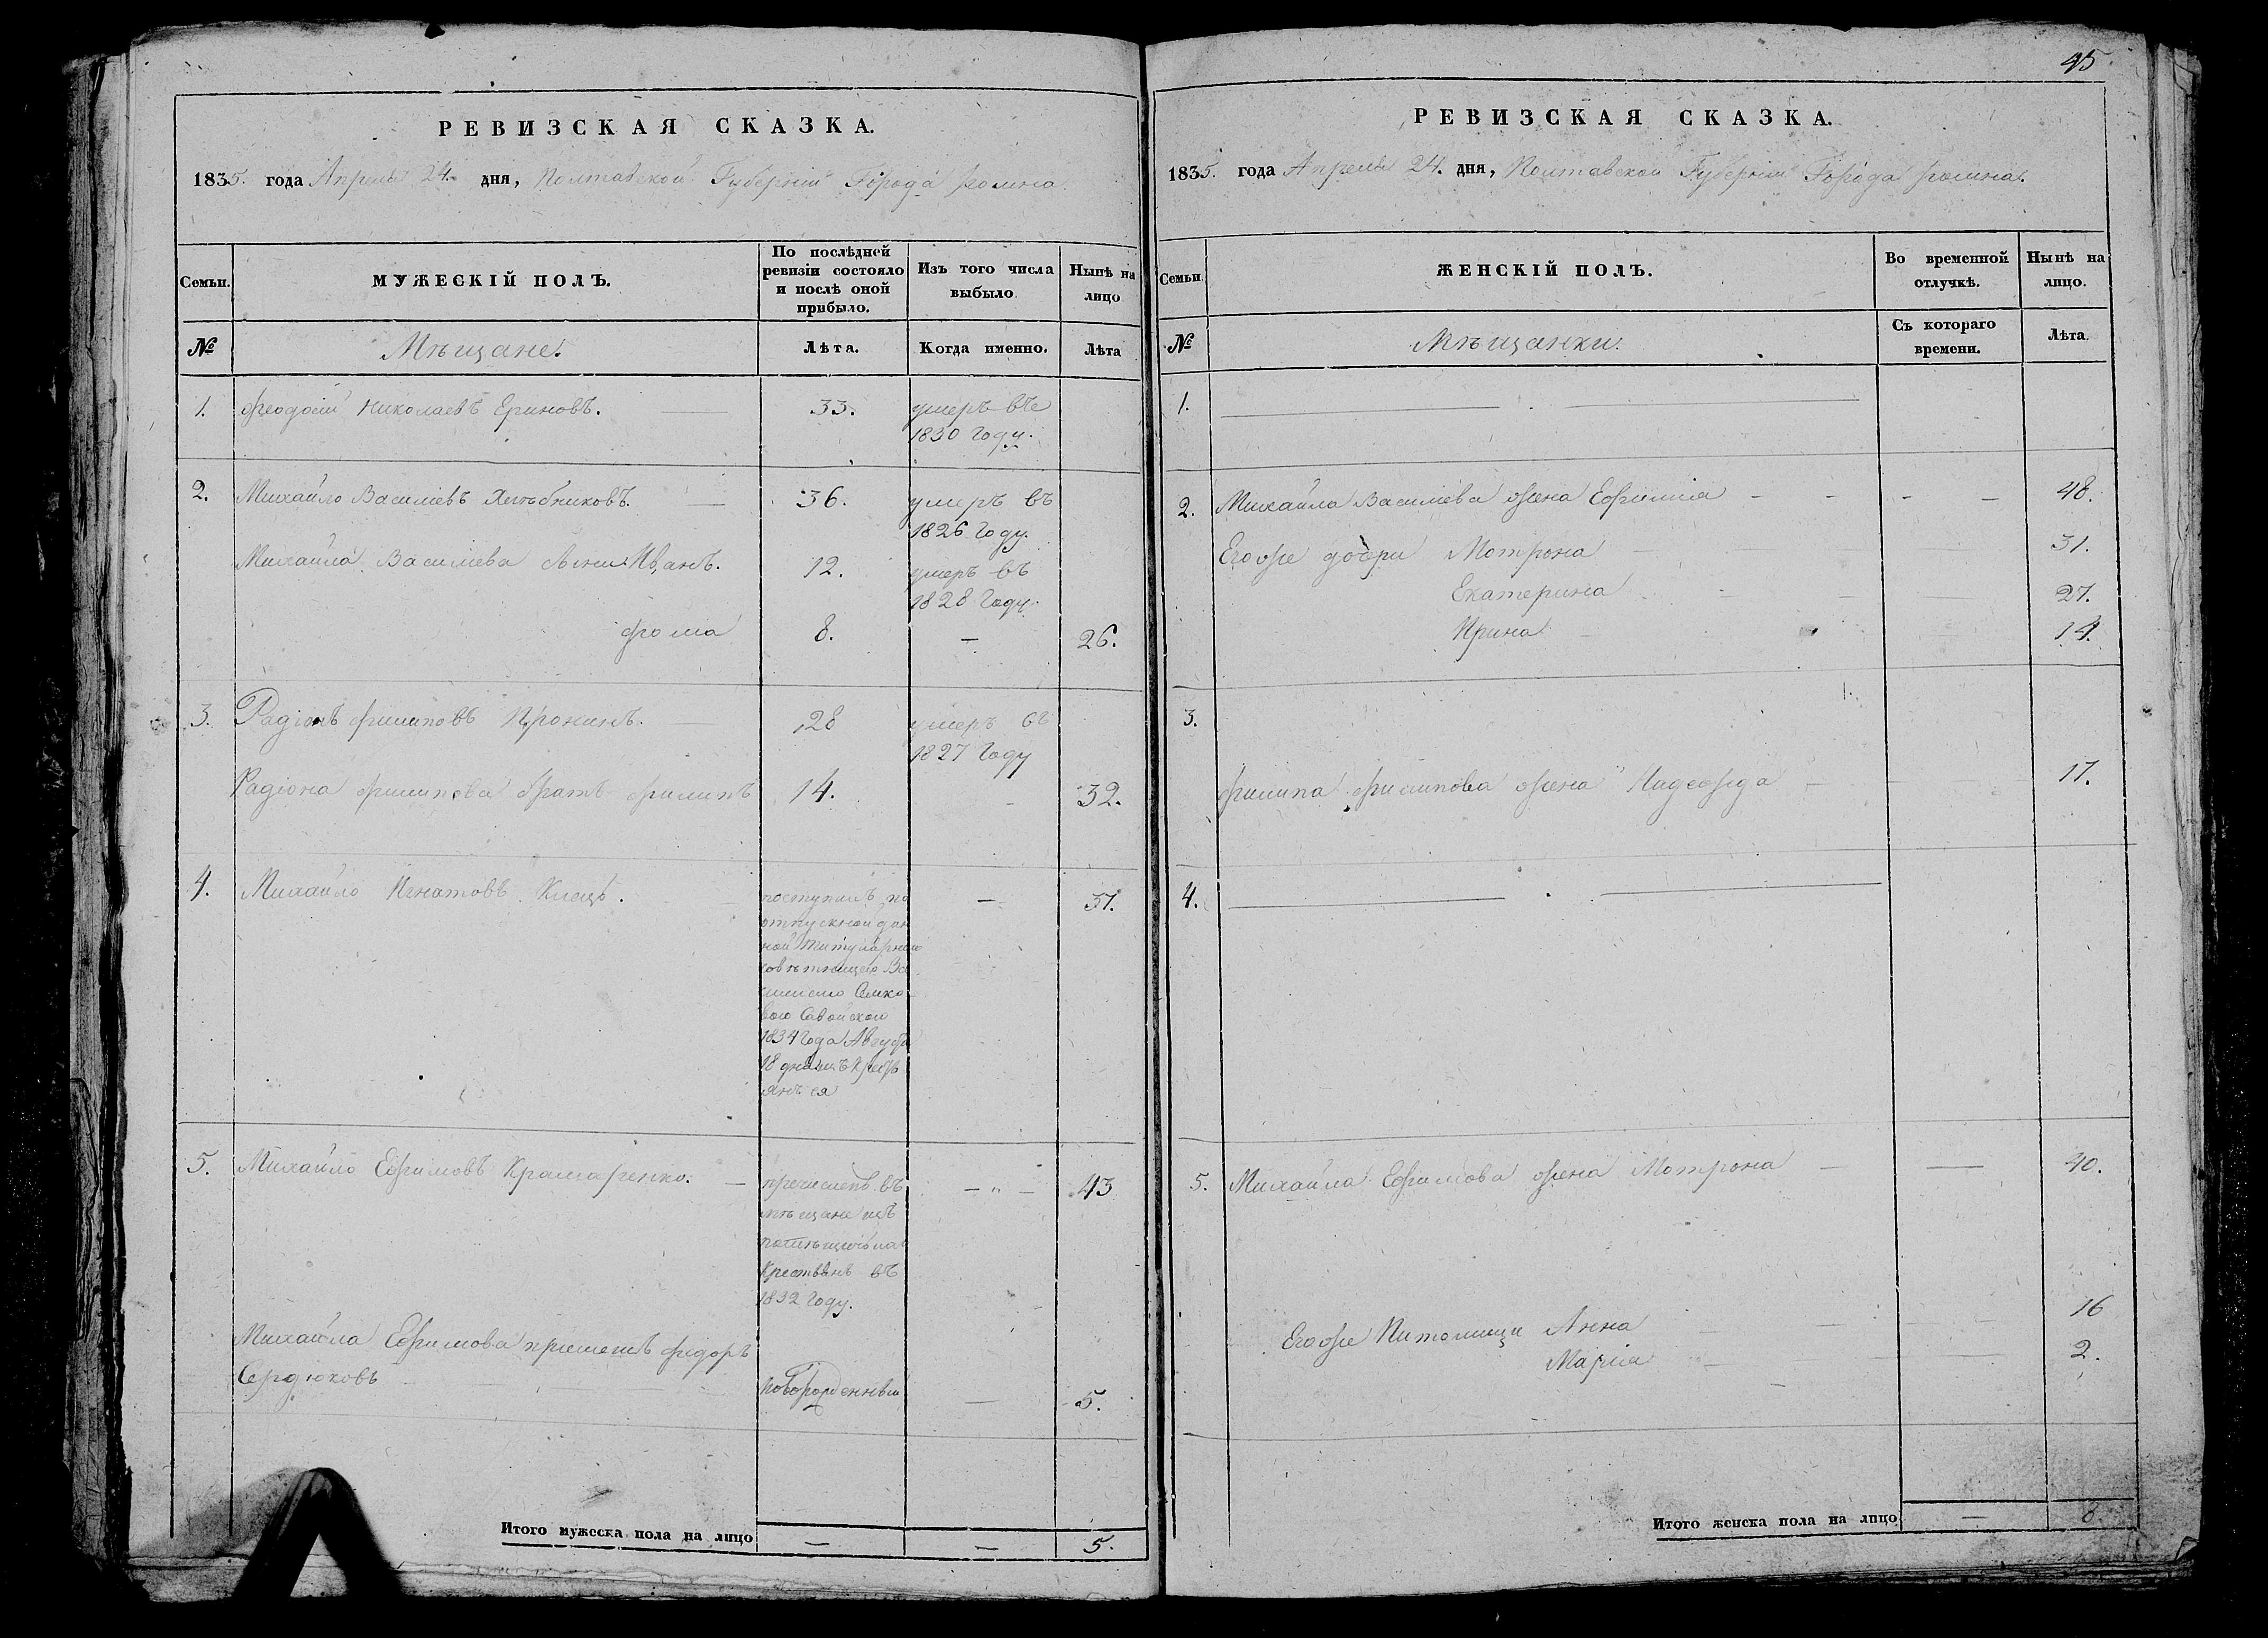 РЕВИЗСКАЯ СКАЗКА.
1835. года Апреля 24. дня, Полтавской Губерніи Города Ромна
Семьи.
МУЖЕСКІЙ ПОЛЪ.
По послѣдней ревизіи состояло и послѣ оной прибыло.
Изъ того числа выбыло
Нынѣ на лицо
№
Мѣщане.
Лѣта.
Когда именно.
Лѣта
1. Феодосій Николаевъ Ериновъ. 33. умеръ въ
1830 Году.
2. Михайло Василіевъ Хлѣбниковъ. 36. умеръ въ
1826 Году.
Михайла Василіева сыни Иванъ. 12. умеръ въ
1828 Году.
Фома 8. — 26.
3. Радіонъ Филиповъ Пронинъ. 28 умеръ въ
1827 Году
Радіона Филипова братъ Филипъ 14. — 32.
4. Михайло Игнатовъ Клецъ. поступилъ по — 31.
отпускной дан
ной титулярнымъ
совѣтникомъ Ва
1834 Года Августа
18 дня
5. Михайло Ефимовъ Крамаренко. — пречисленъ въ — " — 43
мѣщане изъ
Крестьянъ въ
1832 Году.
Михайла Ефимова пріемышъ Федоръ
Сердюковъ новорожденный — 5.
Итого мужеска пола на лицо — — 5.
45
РЕВИЗСКАЯ СКАЗКА.
1835. года Апреля 24. дня, Полтавской Губерніи Города Ромна.
Семьи.
ЖЕНСКІЙ ПОЛЪ.
Во временной отлучкѣ.
Нынѣ на лицо.
№
Мѣщанки.
Съ котораго времени.
Лѣта.
1.
2. Михайла Василіева жена Ефимія — — — — 48.
Его же дочери Мотрона 31.
Екатерина 27.
Ирина 14.
3.
Филипа Филипова жена Надежда 17.
4.
5. Михайла Ефимова жена Мотрона — — 40.
Его же Питомици Анна 16
Марія 2.
Итого женска пола на лицо — 8